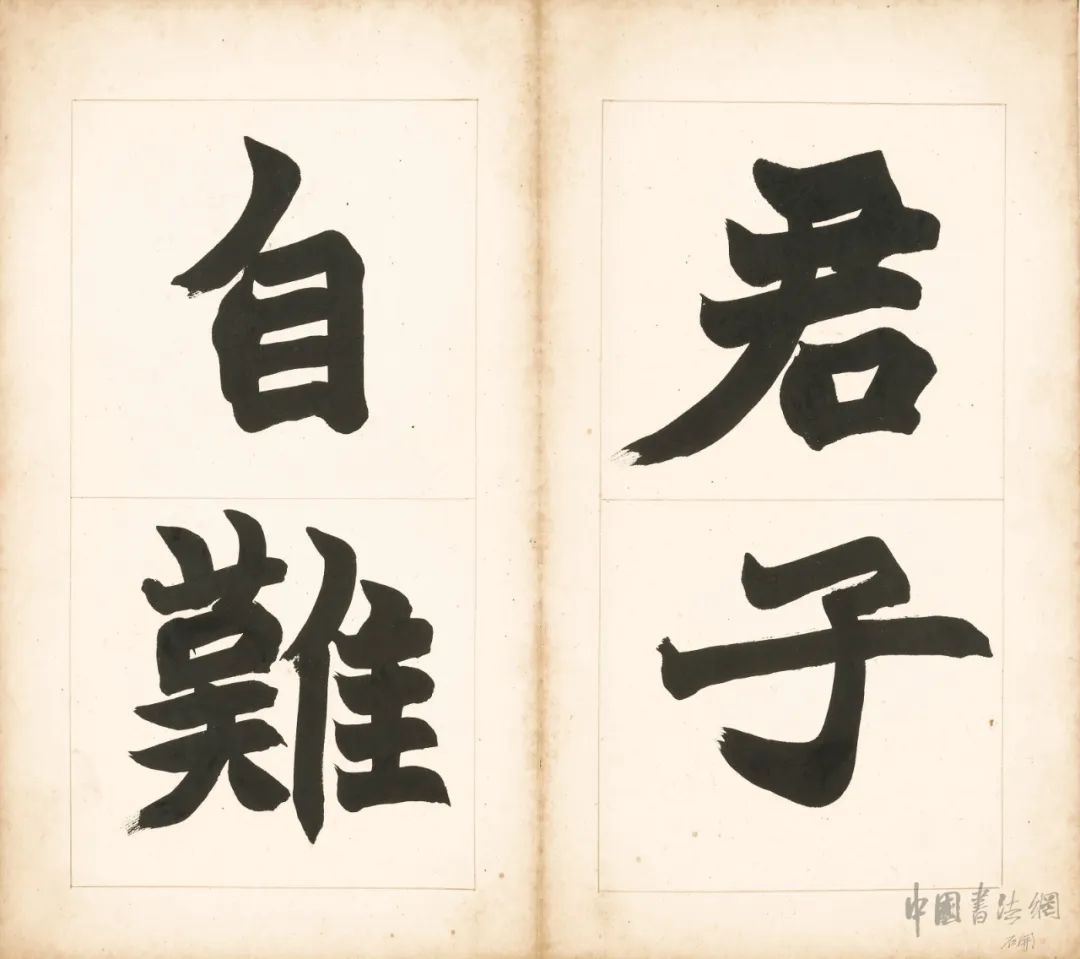 君子
自難
中國書法網